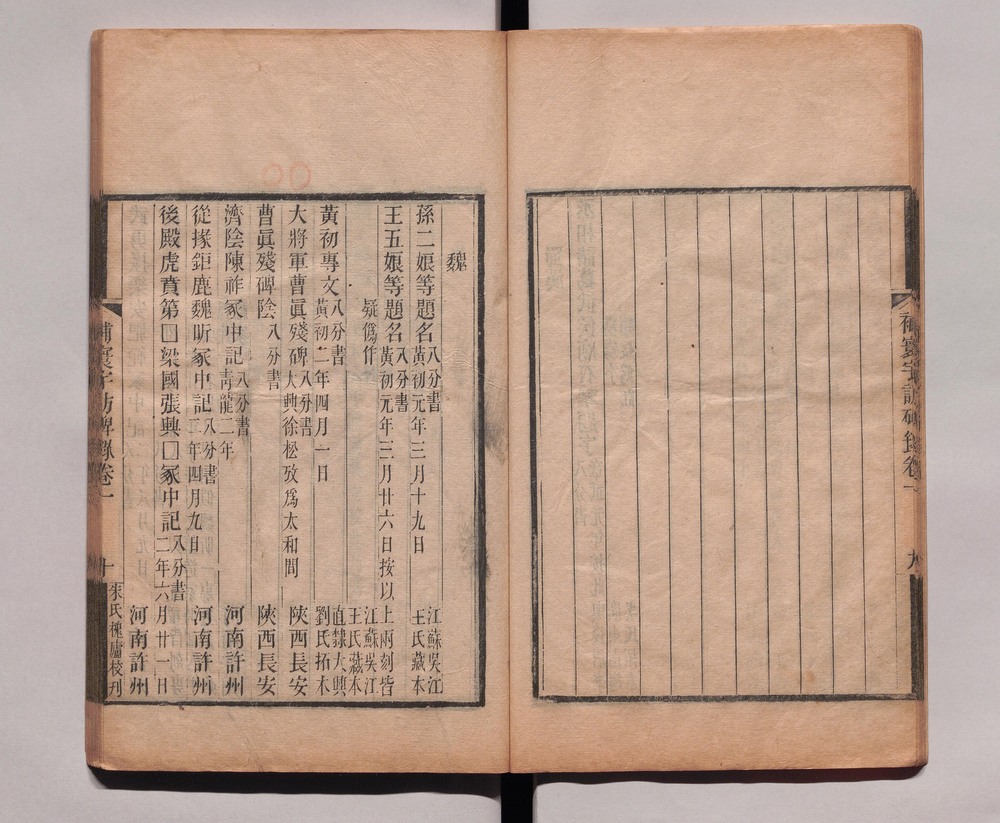 補寰宇訪碑錄卷一
九
魏
孫二娘等題名八分書黃初元年三月十九日 江蘇吳江王氏藏本
王五娘等題名八分書黃初元年三月廿六日按以上兩刻皆疑僞作 江蘇吳江王氏藏本
黃初專文八分書黃初二年四月一日 直隸大興劉氏拓本
大將軍曹眞殘碑八分書大興徐松攷爲太和間 陝西長安
曹眞殘碑陰八分書 陝西長安
濟陰陳祚冢中記八分書靑龍二年 河南許州
從掾鉅鹿魏昕冢中記八分書二年四月九日 河南許州
後殿虎賁第□梁國張興□冢中記八分書二年六月廿一日 河南許州
補寰宇訪碑錄卷一
十
朱氏槐廬校刊